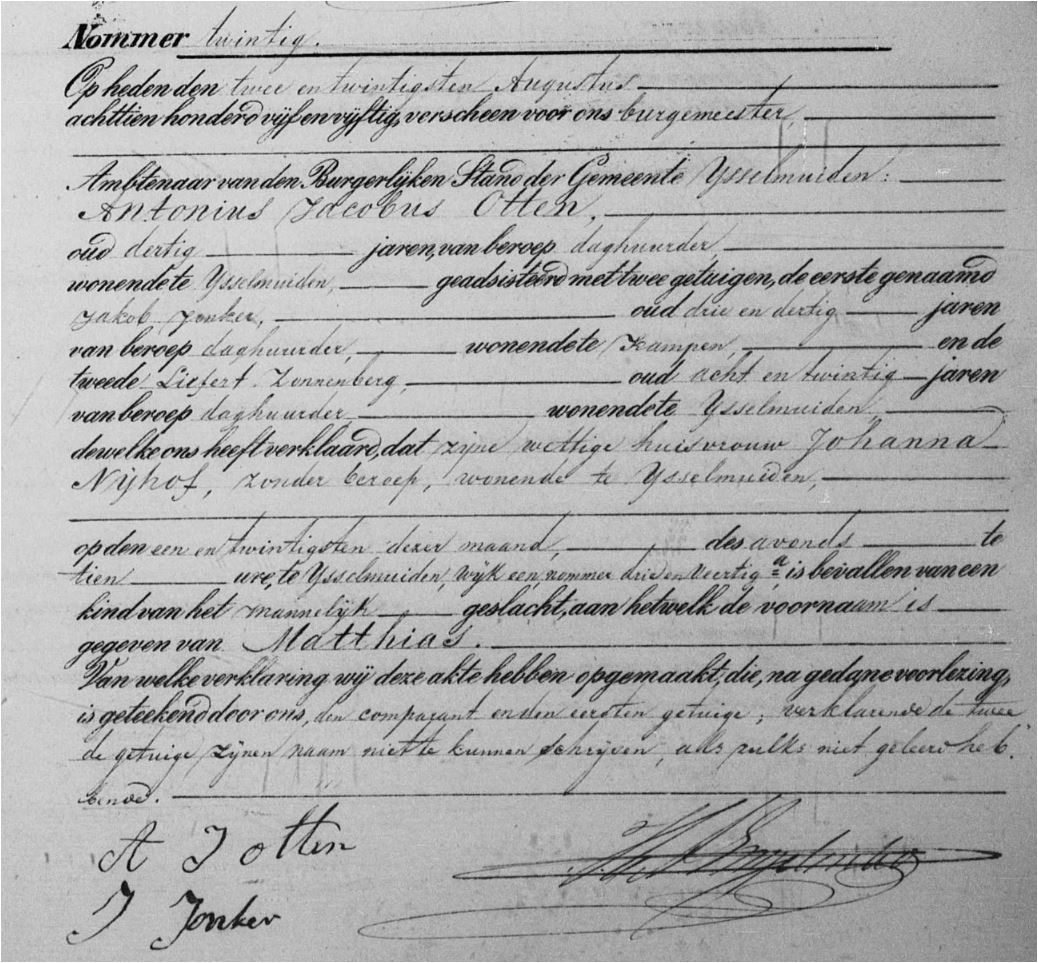 Nommer twintig.
Op heden den twee en twintigsten Augustus
achttien honderd vijf en vijftig, verscheen voor ons burgemeester,
Ambtenaar van den Burgerlijken Stand der Gemeente Ysselmuiden:
Antonius Jacobus Otten,
oud dertig jaren, van beroep daghuurder,
wonende te Ysselmuiden, geadsisteerd met twee getuigen, de eerste genaamd
Jakob Jonker, oud drie en dertig jaren
van beroep daghuurder, wonende te Kampen, en de
tweede Liefert Zonnenberg, oud acht en twintig jaren
van beroep daghuurder wonende te Ysselmuiden
dewelke ons heeft verklaard, dat zijne wettige huisvrouw Johanna
Nijhof, zonder beroep, wonende te Ysselmuiden,
op den een en twintigsten dezer maand, des avonds te
tien ure, te Ysselmuiden, wijk een, nommer drie en veertig a is bevallen van een
kind van het mannelijk geslacht, aan hetwelk de voornaam is
gegeven van Matthias.
Van welke verklaring wij deze akte hebben opgemaakt, die, na gedane voorlezing,
is geteekend door ons, den comparant en den eersten getuige; verklarende de twee
de getuige zijnen naam niet te kunnen schrijven, als zulks niet geleerd heb
bende.
A J Otten
J Jonker